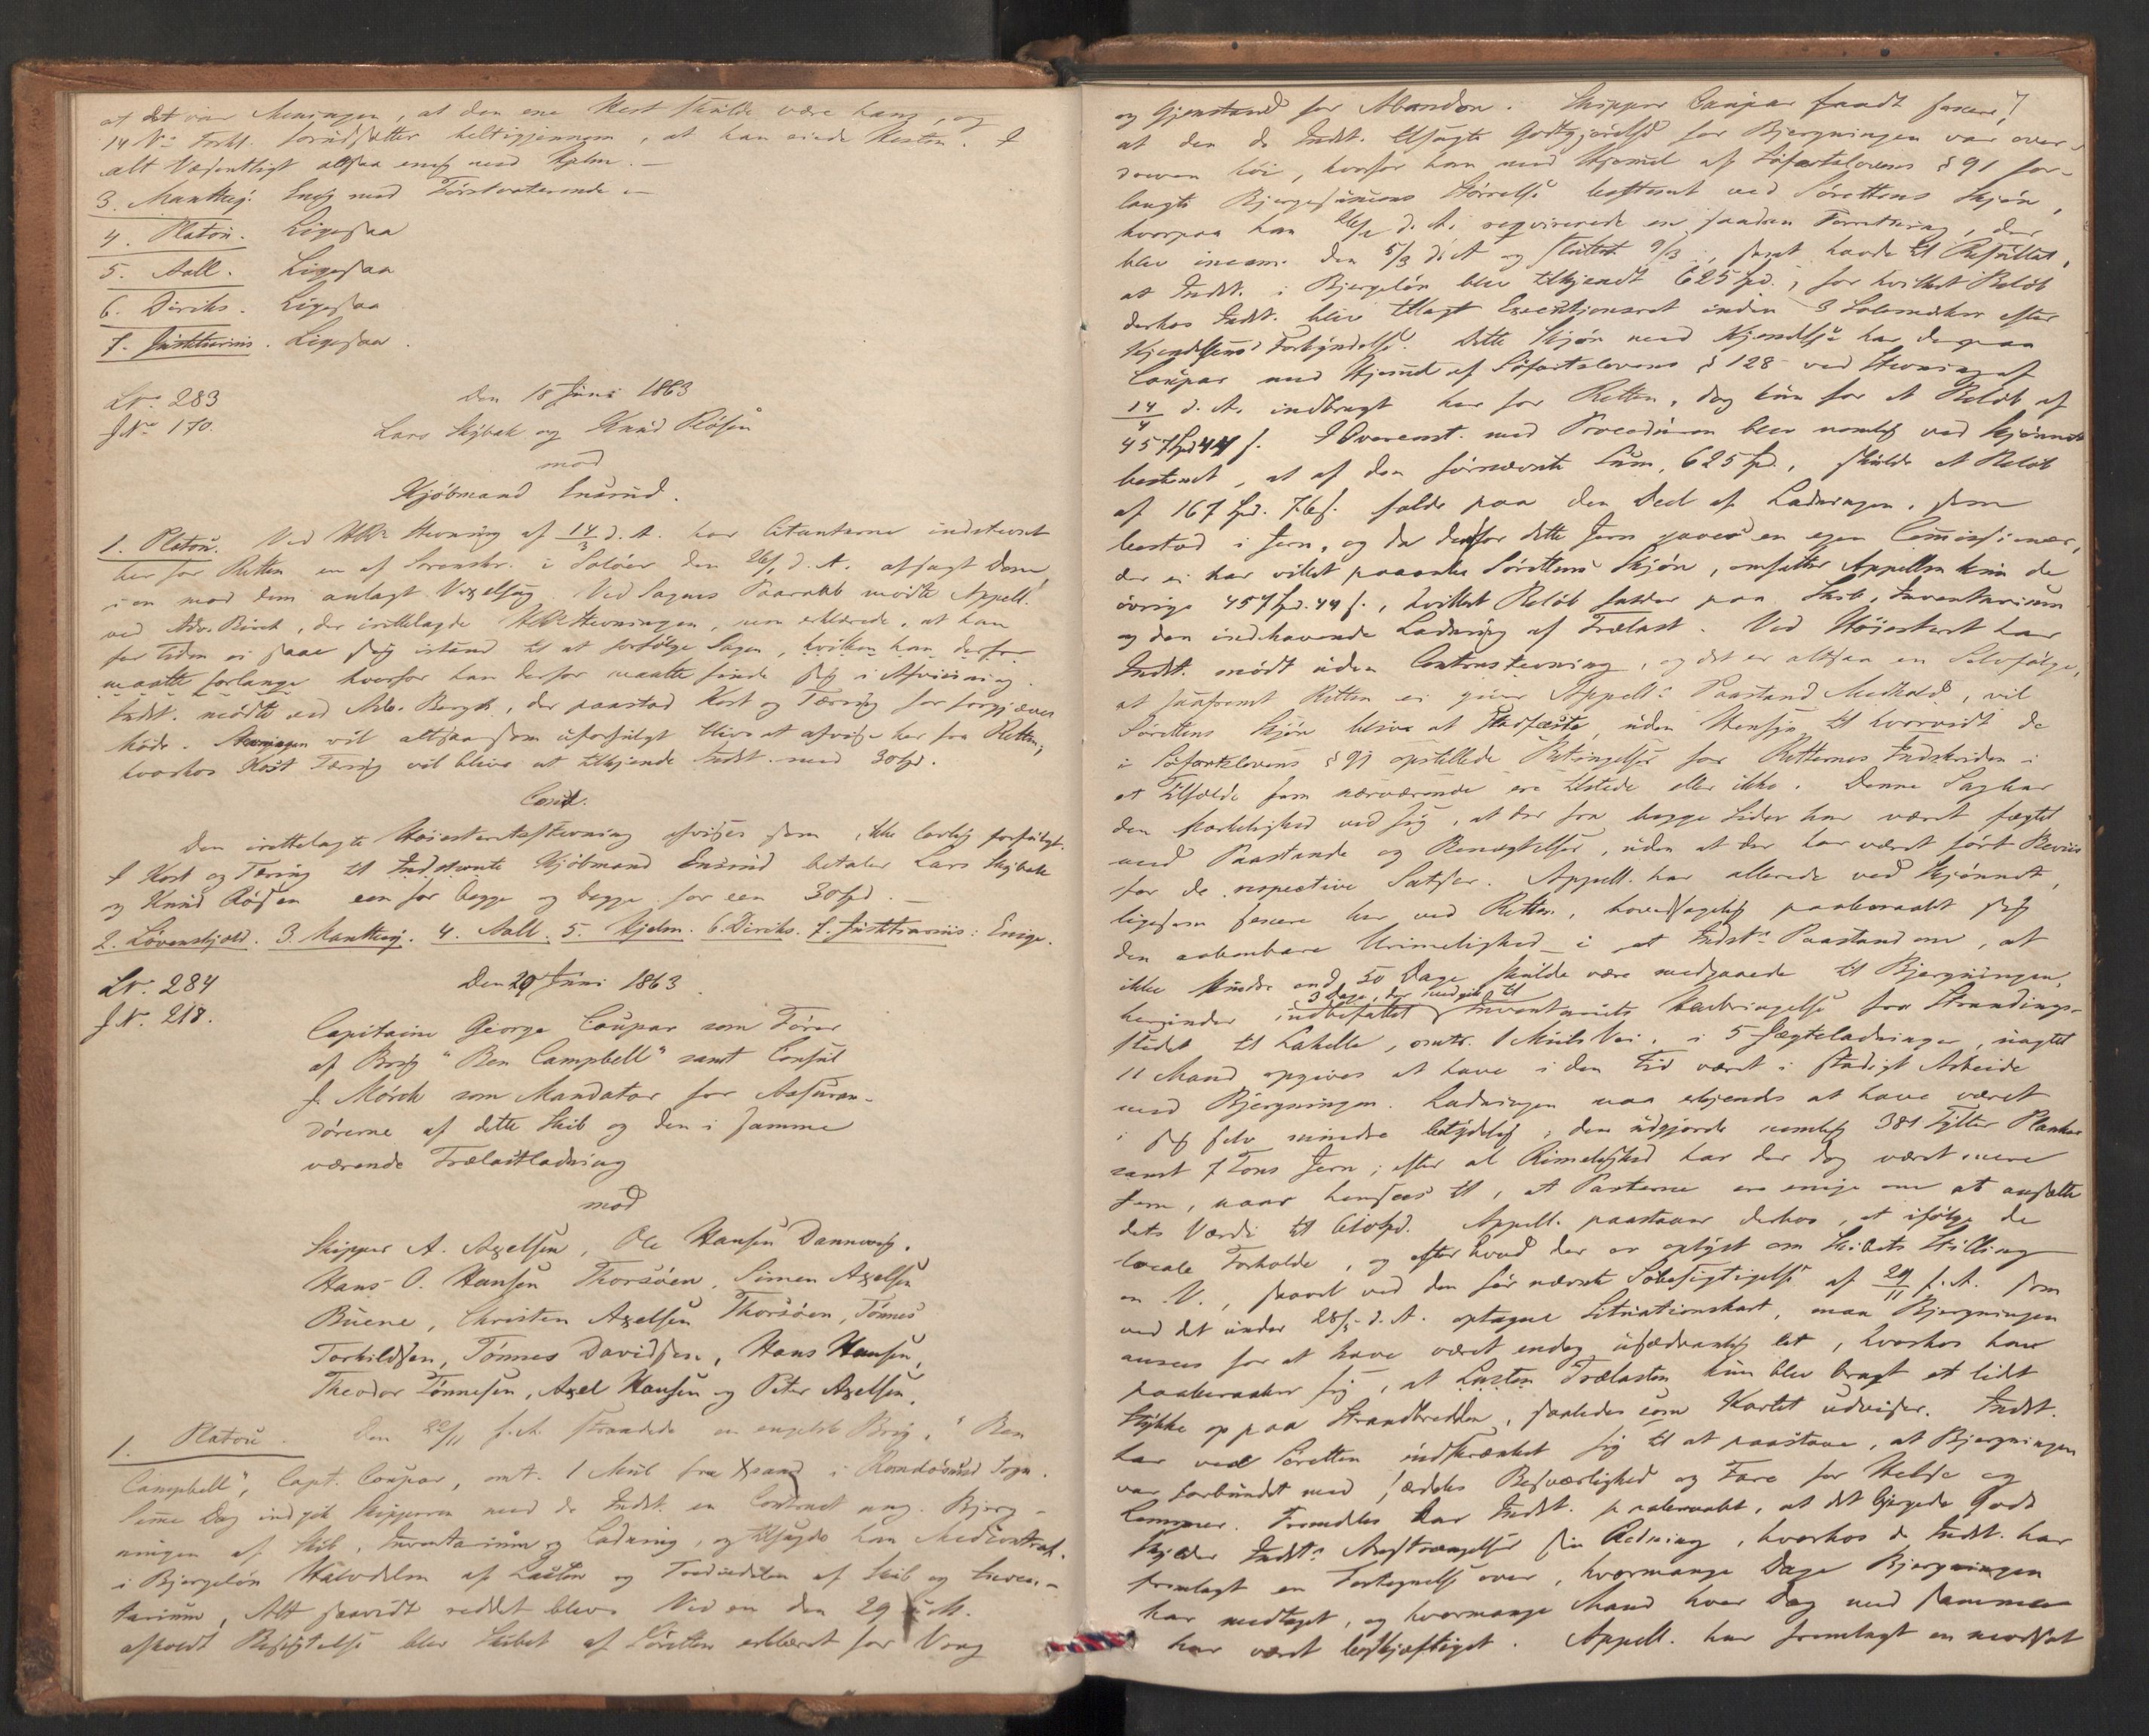 at det var Meningen, at den ene Hest skulde være hans, og
14 No Forkl. forudsætter heltigjennem, at han eiede Hesten. I
alt Væsentligt altsaa enig med Hjelm. —
3. Manthey: Enig med Førstvoterende —
4. Platou. Ligesaa
5. Aall. Ligesaa
6. Diriks. Ligesaa
7. Justitiarius. Ligesaa.
Lr. 283
J No 170.
Den 18 Juni 1863
Lars Skybak og Knud Røsen
mod
Kjøbmand Ensrud.
1. Platou. Ved HRs Stevning af 14/3 d. A. har Citanterne indstevnet
her for Retten en af Sorenskr. i Solør den 26/1 d. A. afsagt Dom
i en mod dem anlagt Vexelsag. Ved Sagens Paaraab mødte Appell.
ved Adv. Birch, der irettelagde HRs Stevningen, men erklærede, at han
for Tiden ei saae sig istand til at forfølge Sagen, hvilken han derfor
maatte forlange hvorfor han derfor maatte finde sig i Afviisning.
Indst. mødte ved Adv. Bergh, der paastod Kost og Tæring for forgjæves
Møde. Stevningen vil altsaa som uforfulgt blive at afvise her fra Retten,
hvorhos Kost Tæring vil blive at tilkjende Indst. med 30 Spd.
Concl.
Den irettelagte Høiesteretsstevning afvises som ikke lovlig forfulgt.
I Kost og Tæring til Indstevnte Kjøbmand Ensrud betaler Lars Skybak
og Knud Røsen een for begge og begge for een 30 Spd. —
2. Løvenskjold. 3. Manthey. 4. Aall. 5. Hjelm. 6. Diriks. 7. Justitiarius: Enige.
Lr. 284
J No. 218.
Den 20 Juni 1863.
Capitaine George Coupar som Fører
af Brig "Ben Campbell" samt Consul
J. Mørch som Mandatar for Assuran-
dørerne af dette Skib og den i samme
værende Trælastladning
mod
Skipper A. Axelsen, Ole Hansen Dannevig,
Hans O. Hansen Thorsøen, Simen Axelsen
Buene, Christen Axelsen Thorsøen, Tønnes
Torkildsen, Tønnes Davidsen, Hans Hansen,
Theodor Tønnesen, Axel Hansen og Peter Axelsen.
1. Platou. Den 22/11 f. A. strandede en engelsk Brig, "Ben
Campbell", Capt. Coupar, omt. 1 Miil fra Xsand i Randøsund Sogn.
Samme Dag indgik Skipperen med de Indst. en Contract ang. Bjerg-
ningen af Skib, Inventarium og Ladning, og tilsagde han Medcontrah.
i Bjergeløn Halvdelen af Lasten og Trediedelen af Skib og Inven-
tarium, Alt saavidt reddet blev. Ved en den 29 s. M.
afholdt Besigtelse blev Skibet af Søretten erklæret for Vrag
og Gjenstand for Abandon. Skipper Coupar fandt senere
at den de Indst. tilsagte Godtgjørelse for Bjergningen var over-
dreven høi, hvorfor han med Hjemmel af Søfartslovens § 91 for-
langte Bjergelønnens Størrelse bestemt ved Sørettens Skjøn,
hvorpaa han 26/2 d. A. requirerede en saadan Forretning, der
blev incam. den 5/3 d. A og sluttet 9/3, samt havde til Resultat,
at Indst. i Bjergeløn blev tilkjendt 625 Spd., for hvilket Beløb
derhos Indst. blev tillagt Executionsret inden 3 Solemærker efter
Kjendelsens Forkyndelse. Dette Skjøn med Kjendelse har derpaa
Coupar med Hjemmel af Søfartslovens § 128 ved Stevning af
14/4 d. A. indbragt her for Retten, dog kun for et Beløb af
457 Spd 44 s. I Overeenst. med Proceduren blev nemlig ved Skjønnet
bestemt, at af den førnævnte Sum, 625 Spd., skulde et Beløb
af 167 Spd. 76 s. falde paa den Deel af Ladningen, som
bestod i Jern, og da der for dette Jern gaves en egen Commissionær,
der ei har villet paaanke Sørettens Skjøn, omfatter Appellen kun de
øvrige 457 Spd. 44 s., hvilket Beløb falder paa Skib, Inventarium
og den indehavende Ladning af Trælast. Ved Høiesteret har
Indst. mødt uden Contrastevning, og det er altsaa en Selvfølge,
at saafremt Retten ei giver Appell.s Paastand Medhold, vil
Sørettens Skjøn blive at stadfæste, uden Hensyn til hvorvidt de
i Søfartslovens § 91 opstillede Betingelser for Retternes Indskriden i
et Tilfælde som nærværende ere tilstede eller ikke. Denne Sag har
den Mærkelighed ved sig, at der fra begge Sider har været fægtet
med Paastande og Benægtelser, uden at der har været ført Beviis
for de respective Satser. Appell. har allerede ved Skjønnet,
ligesom senere her ved Retten, hovedsagelig paaberaabt sig
den aabenbare Urimelighed i at Indst.s Paastand om, at
ikke mindre end 50 Dage skulde være medgaaede til Bjergningen,
3 Dage, der medgik til
herunder indbefattet Inventariets Henbringelse fra Strandings-
stedet til Lahelle, omtr. 1 Miils Vei, i 5 Jægteladninger, uagtet
11 Mand opgives at have i den Tid været i stadigt Arbeide
med Bjergningen. Ladningen maa erkjendes at have været
i sig selv mindre betydelig; den udgjorde nemlig 381 Tylter Planker
samt 7 Tons Jern; efter al Rimelighed har der dog været mere
Jern, naar henseés til, at Parterne ere enige om at ansætte
dets Værdi til 610 Spd. Appell. paastaaer derhos, at ifølge de
locale Forholde, og efter hvad der er oplyst om Skibets Stilling
m. V., saavel ved den før nævnte Søbesigtigelse af 29/11 f. A. som
ved det under 28/3 d. A. optagne Situationskart, maa Bjergningen
ansees for at have været endog usædvanlig let, hvorhos han
paaberaaber sig, at Lasten Trælasten kun blev bragt et lidt
Stykke op paa Strandbredden, saaledes som Kartet udviser. Indst.
har ved Søretten indskrænket sig til at paastaae, at Bjergningen
var forbundet med særdeles Besværlighed og Fare for Helse og
Lemmer. Fremdeles har Indst. paaberaabt, at det bjergede Gods
skylder Indst.s Anstrængelser sin Redning, hvorhos de Indst. har
fremlagt en Fortegnelse over, hvormange Dage Bjergningen
har medtaget, og hvormange Mand hver Dag med samme
har været beskjæftiget. Appell. har fremlagt en modsat